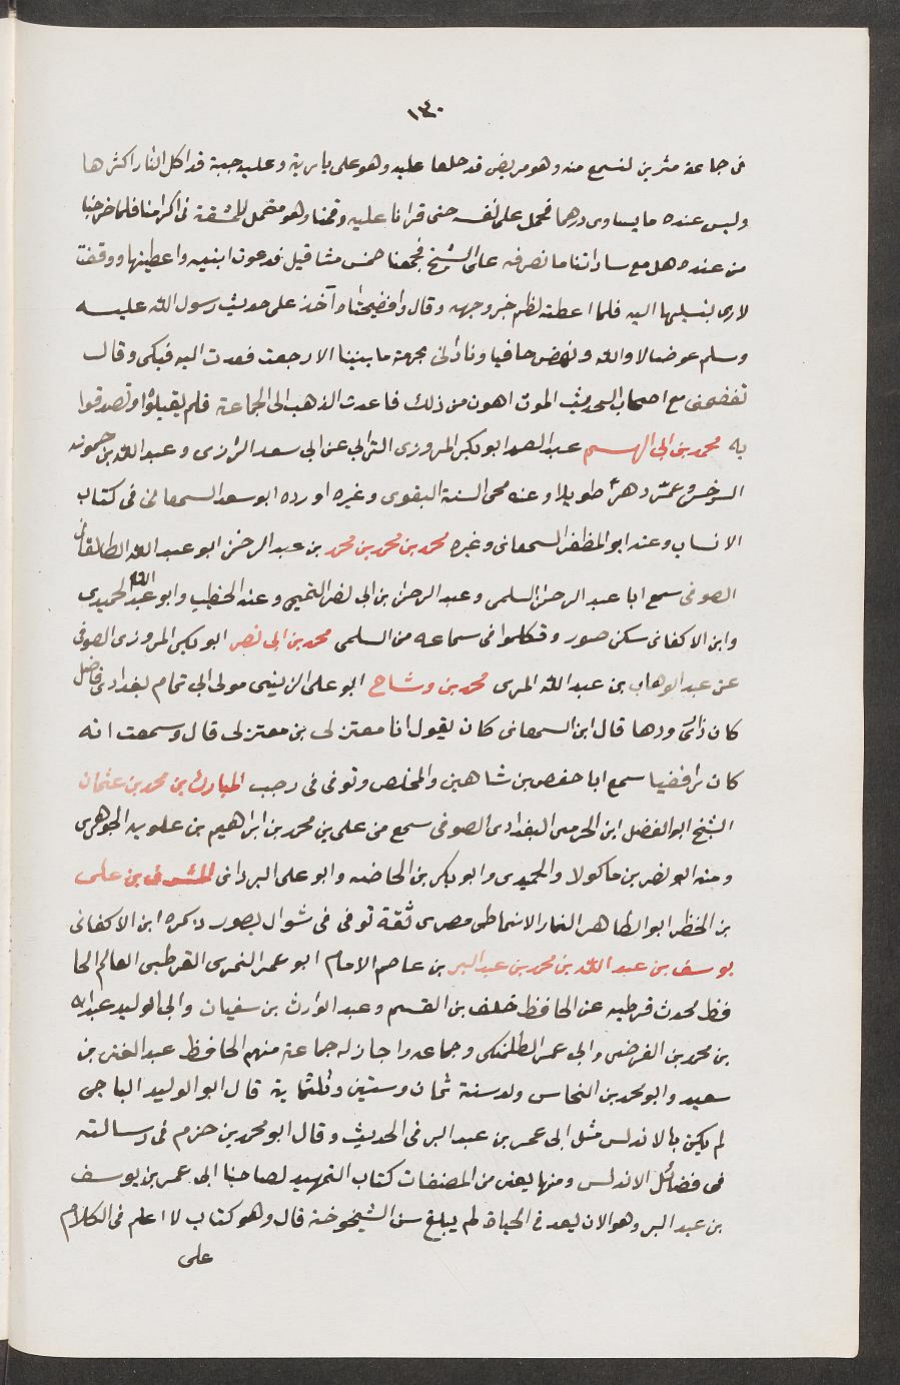 ١٣٠
فى جاعة مثرين لنسمع منه وهو مريض قد خلعا عليه وهو على بارية وعليه جبة قد اكل النار اكثرها
وليس عنده ما يساوى درهما فحمل على نفسه حتى قرانا عليه وقمنا وهو متحمل للمشقة فى اكرامنا فلما خرجنا
من عنده هل مع ساداتنا ما نصرفه على الشيخ فجمعنا خمس مثاقيل فدعوت ابنيه واعطيتها ووقفت
لارى بتسليمها اليه فلما اعطته لطم خر وجهه وقال وافضيحتاه آخذ على حديث رسول الله عليه
وسلم عوضا لا والله ونهض حافيا ونادانى بحرمة ما بيننا الا رجعت فعدت اليه فبكى وقال
تفضحنى مع اصحاب الحديث الموت اهون من ذلك فاعدت الذهب الى الجماعة فلم يقبلوا وتصدقوا
به محمد بن ابى الهيثم عبد الصمد ابو بكر المروزى الترابى عن ابى سعد الرازى وعبد الله بن حمويه
السرخسى وعمر دهرا طويلا وعنه محى السنة البغوى وغيره اورده ابو سعد السمعانى فى كتاب
الانساب وعنه ابو المظفر السمعانى وغيره محمد بن محمد بن محمد بن عبد الرحمن ابو عبد الله الطالقانى
الصوفى سمع ابا عبد الرحمن السلمى وعبد الرحمن بن ابى نصر التميمى وعنه الخطيب وابو عبد الله الحميدى
وابن الاكفانى سكن صور وتكلموا فى سماعه من السلمى محمد بن ابى نصر ابو بكر المروزى الصوفى
عن عبد الوهاب بن عبد الله المرى محمد بن وشاح ابو على الزينبى مولى ابى تمام بغدادى فاضل
كان ورها قال ابن السمعانى كان يقول انا معتزلى بن معتزلى قال وسمعت انه
كان رافضيا سمع ابا حفص بن شاهين والمخلص وتوفى فى رجب المبارك بن محمد بن عثمان
الشيخ ابو الفضل ابن الحرمى البغدادى الصوفى سمع من على بن محمد بن ابراهيم بن علويه الجوهرى
ومنه ابو نصر بن ماكولا والحميدى وابو بكر بن الخاضبه وابو على البردانى المشرف بن على
بن الخضر ابو الطاهر التمار الانماطى مصرى ثقة توفى فى شوال بصور ذكره ابن الاكفانى
يوسف بن عبد الله بن محمد بن عبد البر بن عاصم الامام ابو عمر النمرى القرطبى العالم الحا
فظ محدث قرطبه عن الحافظ خلف بن القسم وعبد الوارث بن سفيان وابى الوليد عبد الله
بن محمد بن الفرضى وابى عمر الطلمنكى وجماعه واجاز له جماعة منهم الحافظ عبد الغنى بن
سعيد وابو محمد بن النحاس ولد سنة ثمان وستين وثلثماية قال ابو الوليد الباجى
لم يكن بالاندلس مثل ابى عمر بن عبد البر فى الحديث وقال ابو محمد بن حزم فى رسالته
فى فضائل الاندلس ومنها يعنى من المصنفات كتاب التمهيد لصاحبنا ابى عمر بن يوسف
بن عبد البر وهو الان بعد فى الحياة لم يبلغ سن الشيخوخة قال وهو كتاب لا اعلم فى الكلام
على